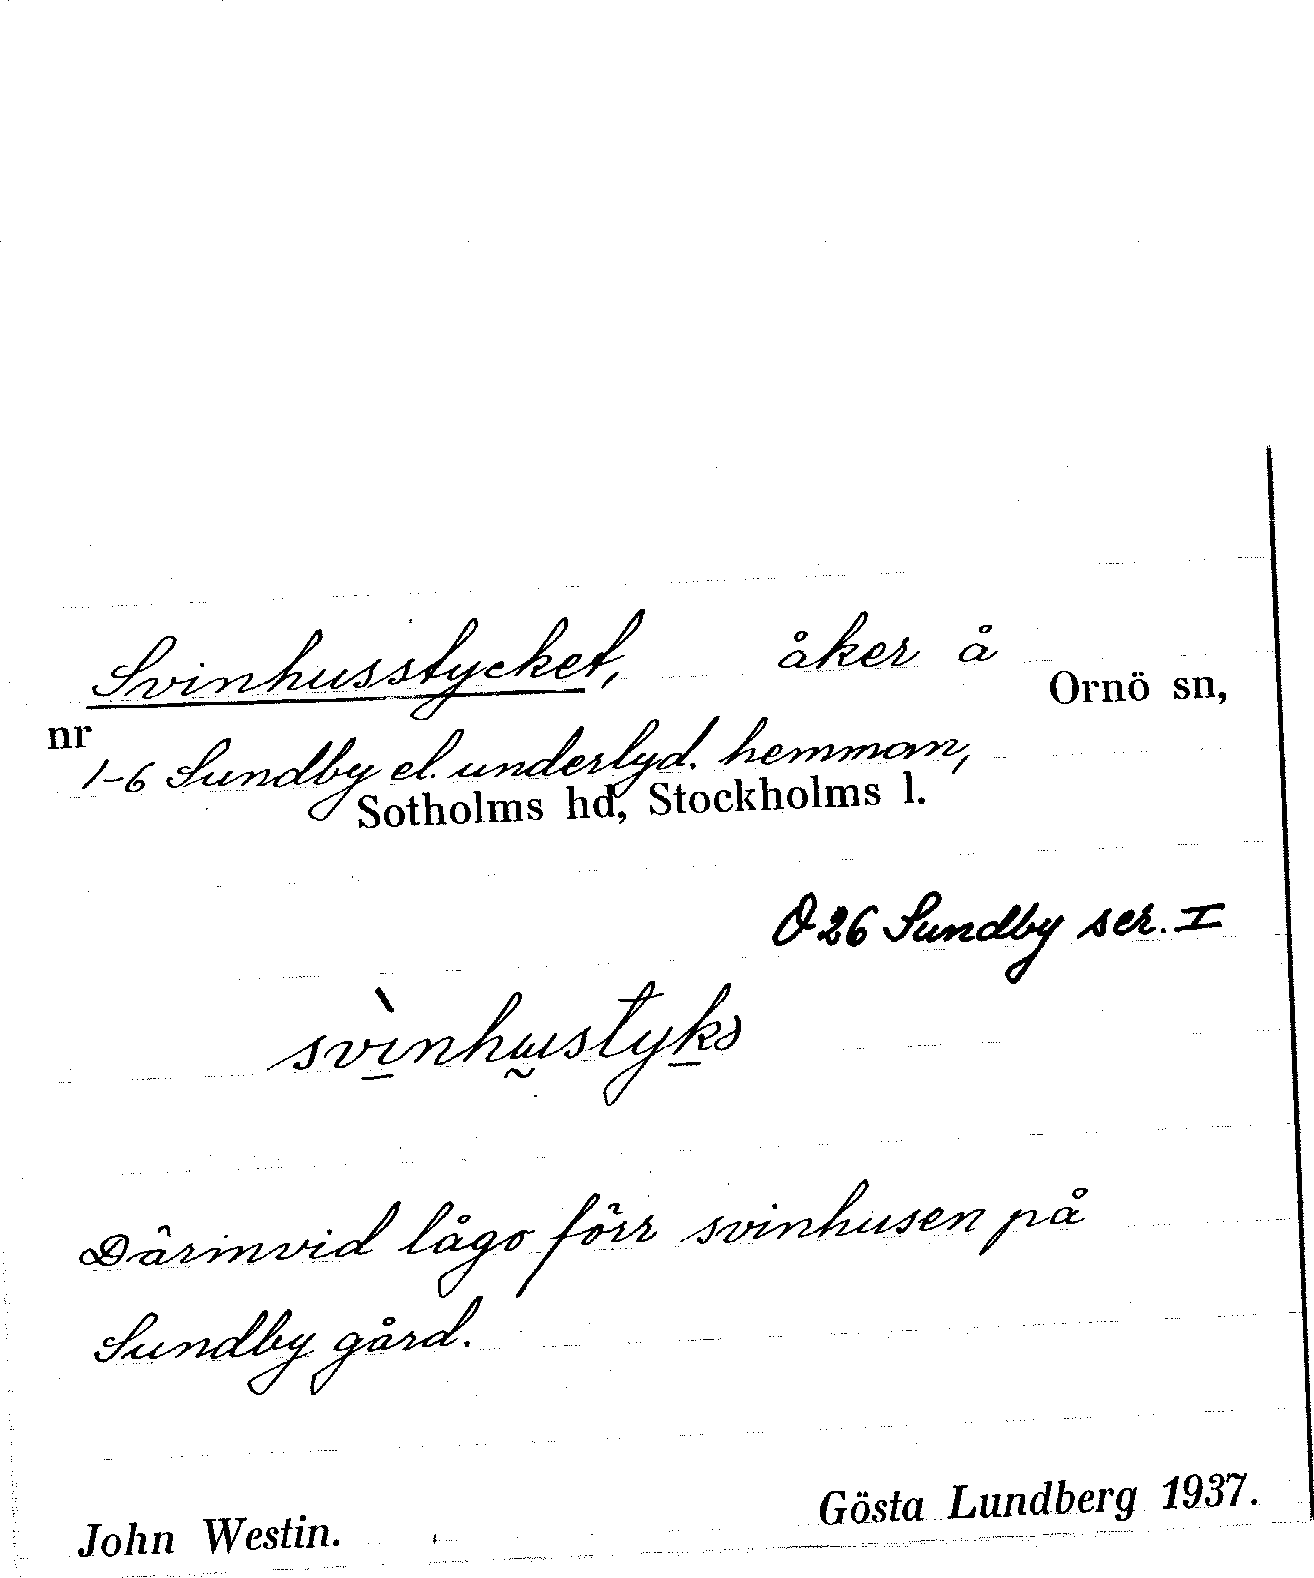 Svinhusstycket, åker å Ornö sn,
nr 1-6 Sundby el. underlyd. hemman,
Sotholms hd, Stockholms l.
O 26 Sundby ser. I
svìnhustykə
Därinvid lågo förr svinhusen på
Sundby gård.
John Westin. Gösta Lundberg 1937.